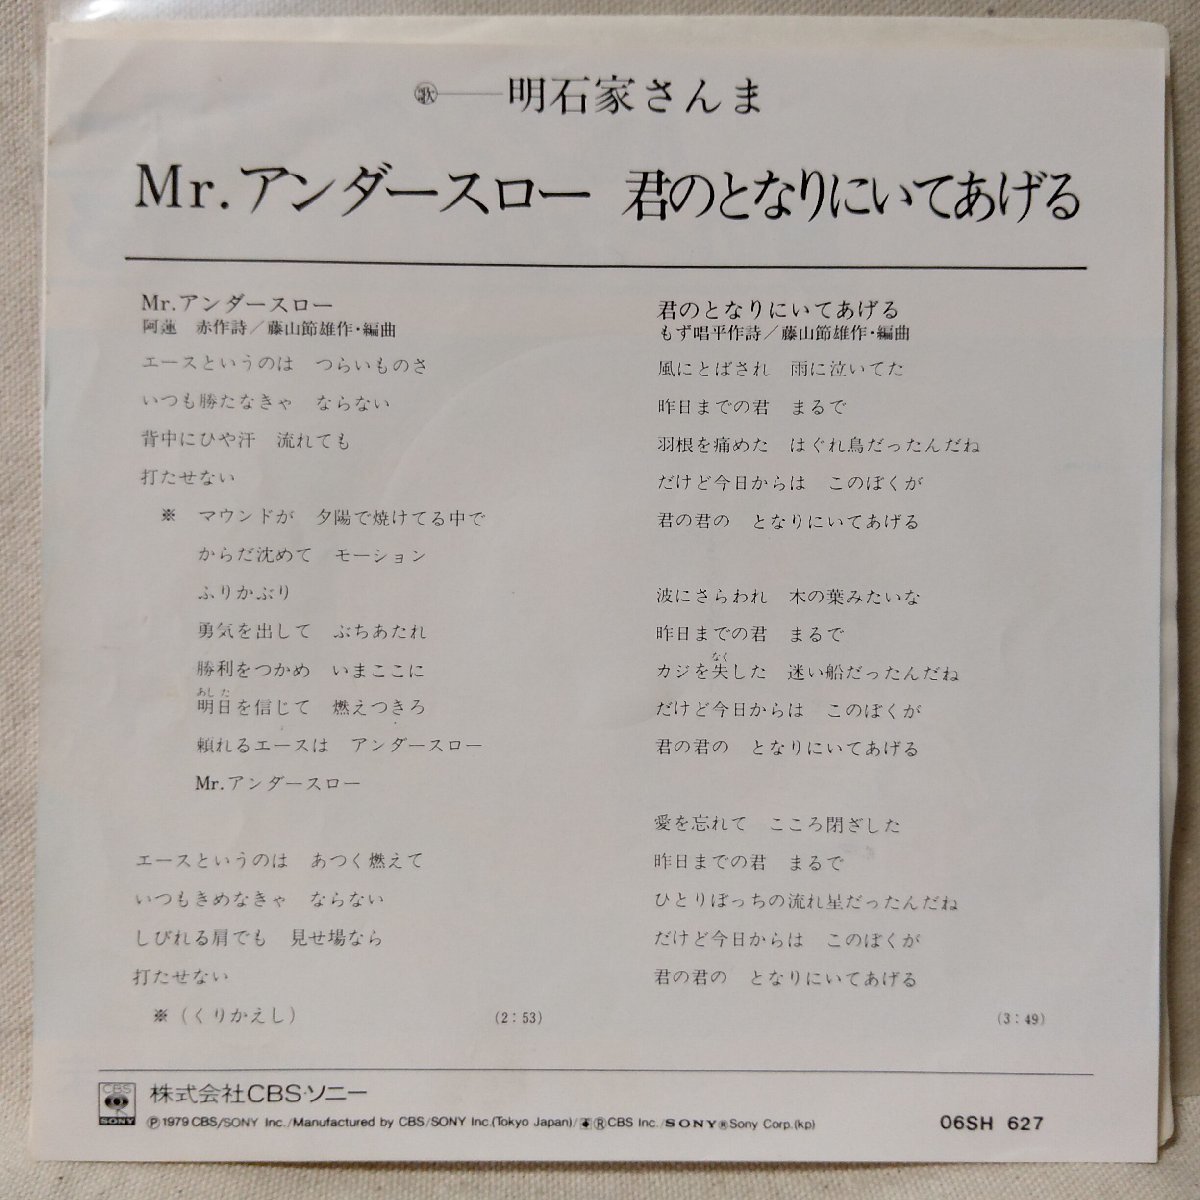 歌――明石家さんま
Mr.アンダースロー 君のとなりにいてあげる
Mr.アンダースロー
阿蓮 赤作詩/藤山節雄作・編曲
エースというのは つらいものさ
いつも勝たなきゃ ならない
背中にひや汗 流れても
打たせない
※ マウンドが 夕陽で焼けてる中で
からだ沈めて モーション
ふりかぶり
勇気を出して ぶちあたれ
勝利をつかめ いまここに
あした
明日を信じて 燃えつきろ
頼れるエースは アンダースロー
Mr.アンダースロー
エースというのは あつく燃えて
いつもきめなきゃ ならない
しびれる肩でも 見せ場なら
打たせない
※(くりかえし)
(2:53)
君のとなりにいてあげる
もず唱平作詩/藤山節雄作・編曲
風にとばされ 雨に泣いてた
昨日までの君 まるで
羽根を痛めた はぐれ鳥だったんだね
だけど今日からは このぼくが
君の君の となりにいてあげる
波にさらわれ 木の葉みたいな
昨日までの君 まるで
なく
カジを失した 迷い船だったんだね
だけど今日からは このぼくが
君の君の となりにいてあげる
愛を忘れて こころ閉ざした
昨日までの君 まるで
ひとりぼっちの流れ星だったんだね
だけど今日からは このぼくが
君の君の となりにいてあげる
(3:49)
CBS
SONY
株式会社CBS・ソニー
Ⓟ1979 CBS/SONY Inc./Manufactured by CBS/SONY Inc.(Tokyo Japan)/®CBS Inc./SONY®Sony Corp.(kp)
06SH 627